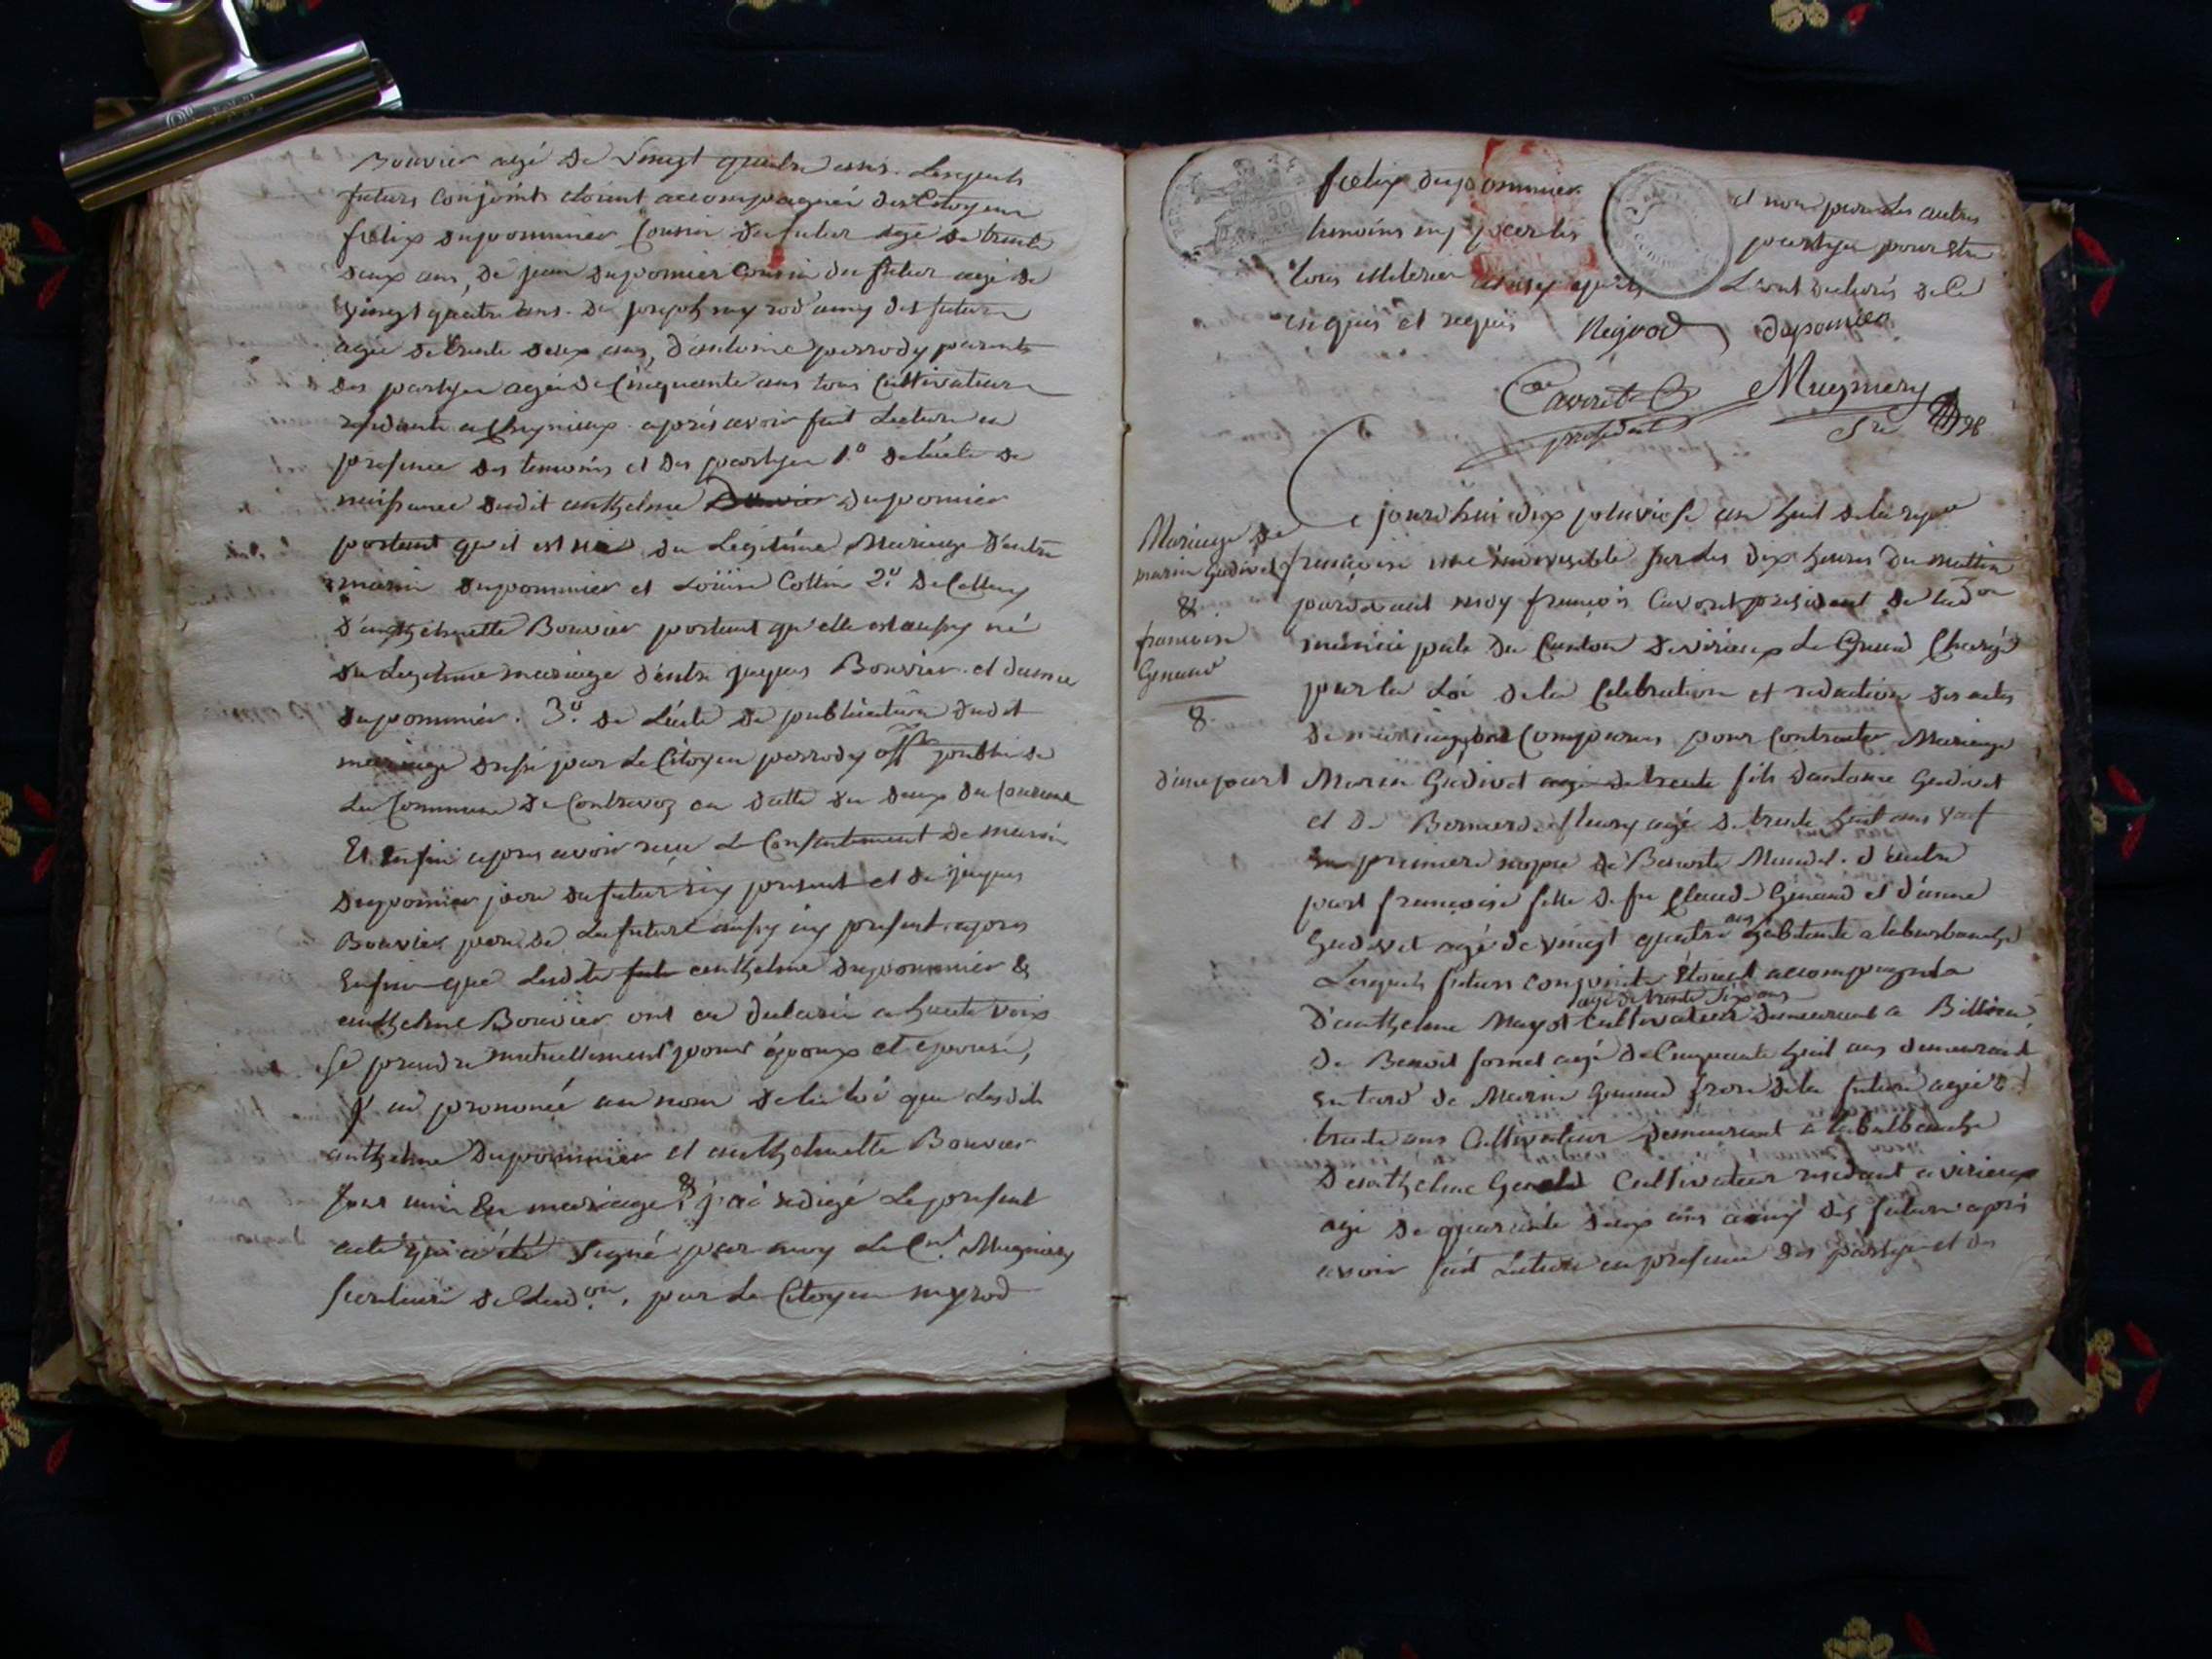 Bouvier agé de vingt quatre ans. Lesquels
futurs conjoints etoient accompagnés des Citoyens
felix dupommier Cousin du futur agé de trente
deux ans, de jean dupomier Cousin du futur agé de
vingt quatre ans. de joseph neyrod amy des futurs
agée de trente deux ans, d'antoine perrody parents
des partyes agée de Cinquante ans tous Cultivateurs
residants a Cheynieux. aprés avoir fait Lecture en
presence des temoins et des partyes 1.º de l'acte de
naissance dudit anthelme Bouvier dupomier
portant qu'il est né du Légitime Mariage d'entre
marin dupommier et Loüise Cottin 2.º de Celluy
d'anthelmette Bouvier portant qu'elle est aussy né
du Legitime mariage d'entre jaques Bouvier et
dupommier. 3.º de L'acte de publication dudit
mariage dressé par Le Citoyen perrody off.er public de
La Commune de Contrevoz en datte du deux du Courant
Et Enfin apres avoir reçu Le Consentement de marin
dupomier pere du futur icy present et de jaques
Bouvier pere de La future aussy icy present. apres
Enfin que Lesdits anthelme dupommier &
anthelme Bouvier ont eu declaré a haute voix
se prendre mutuellement pour époux et epouse,
j'ai prononcé au nom de la loi que Lesdits
anthelme Dupommier et anthelmette Bouvier
sont unis En mariage & j'ai redigé Le present
acte qui a été Signé par moy Le C.en Mugniery
secretaire de Lad.on, par Le Citoyen neyrod
felix dupommier et non par les autres
temoins ny par les partyes pour être
tous illiterés ainsy qu'ils L'ont declarés de ce
enquis et requis Neyrod dupomier
Cavoret Mugniery
president Sre
Ce jourd'hui dix pluviose an huit de la repu
Mariage de
marin Gudivet
&
francoise
Genaud
8.
françoise une & indivisible sur les dix heures du mattin
pardevant moy françois Cavoret president de Lad.on
municipale du Canton de virieux Le Grand Chargé
par la Loi de la Celebration et redaction des actes
de mariage, ont Comparus pour Contracter Mariage
d'une part Marin Gudivet agé de trente fils d'antoine Gudivet
et de Bernarde fleury agé de trente huit ans veuf
en premiere noppce de Benoite Mundel. d'autre
part françoise fille de feu Claude Génaud et d'anne
Gudivet agé de vingt quatre ans habitante a laburbanche
Lesquels futurs conjoints étoient accompagnés
agé de trente six ans
D'anthelme Mayot Cultivateur demeurant a Billieu
de Benoit fornet agé de Cinquante huit ans demeurant
en tard de Marin Genaud frere de la future agée de
trente ans Cultivateur demeurant a la Balbanche
D'anthelme Cultivateur residant a virieux
agé de quarante deux ans amy des futurs aprés
avoir fait Lecture en presence des partyes et des